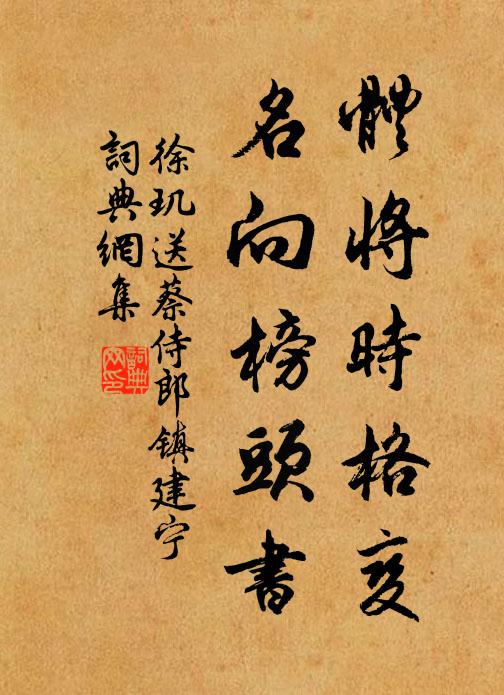 體將時格變
名向榜頭書
徐玑送蔡侍郎镇建宁
詞典網集
詞典網印